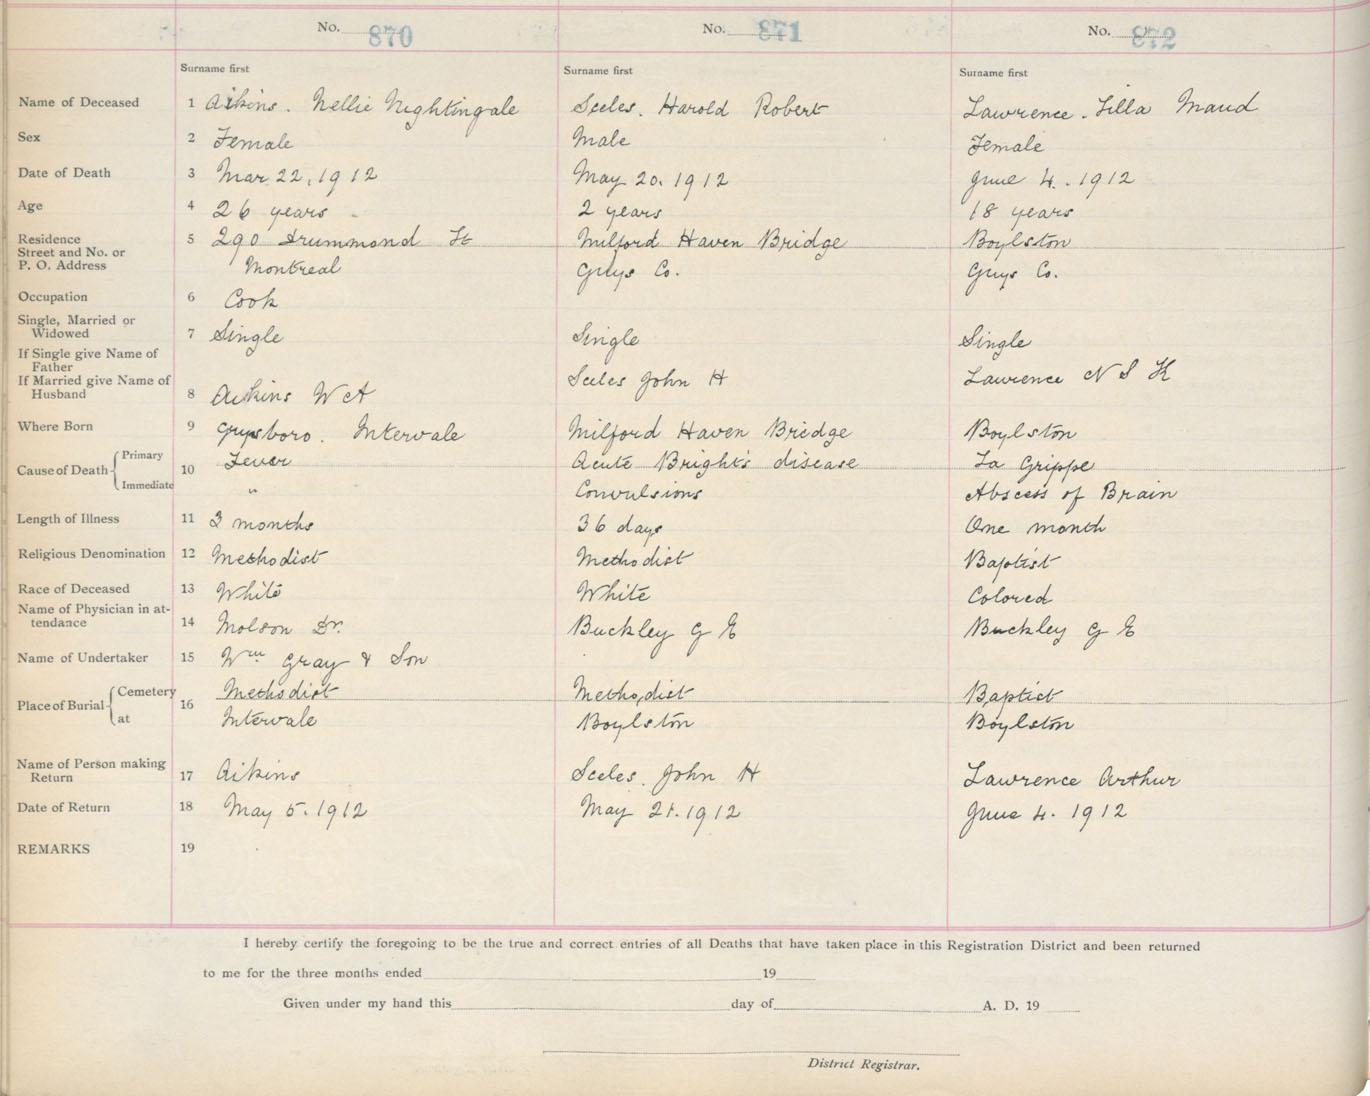 No. 870 No. 871 No. 872
Surname first Surname first Surname first
Name of Deceased 1 Aikins. Nellie Nightingale Sceles. Harold Robert Lawrence. Lilla Maud
Sex 2 Female Male Female
Date of Death 3 Mar. 22, 1912 May 20. 1912 June 4. 1912
Age 4 26 years 2 years 18 years
Residence
Street and No. or 5 290 Drummond St Milford Haven Bridge Boylston
P. O. Address Montreal Guys Co. Guys Co.
Occupation 6 Cook
Single, Married or
Widowed 7 Single Single Single
If Single give Name of
Father
If Married give Name of Sceles John H Lawrence N S K
Husband 8 Aikins W A
Where Born 9 Guysboro. Intervale Milford Haven Bridge Boylston
Cause of Death Primary 10 Fever Acute Bright's disease La Grippe
Immediate " Convulsions Abscess of Brain
Length of Illness 11 3 months 36 days One month
Religious Denomination 12 Methodist Methodist Baptist
Race of Deceased 13 White White Colored
Name of Physician in at-
tendance 14 Molson Dr. Buckley G E Buckley G E
Name of Undertaker 15 Wm Gray & Son
Place of Burial Cemetery 16 Methodist Methodist Baptist
at Intervale Boylston Boylston
Name of Person making
Return 17 Aikins Sceles. John H Lawrence Arthur
Date of Return 18 May 5. 1912 May 21. 1912 June 4. 1912
REMARKS 19
I hereby certify the foregoing to be the true and correct entries of all Deaths that have taken place in this Registration District and been returned
to me for the three months ended 19
Given under my hand this day of A. D. 19
District Registrar.